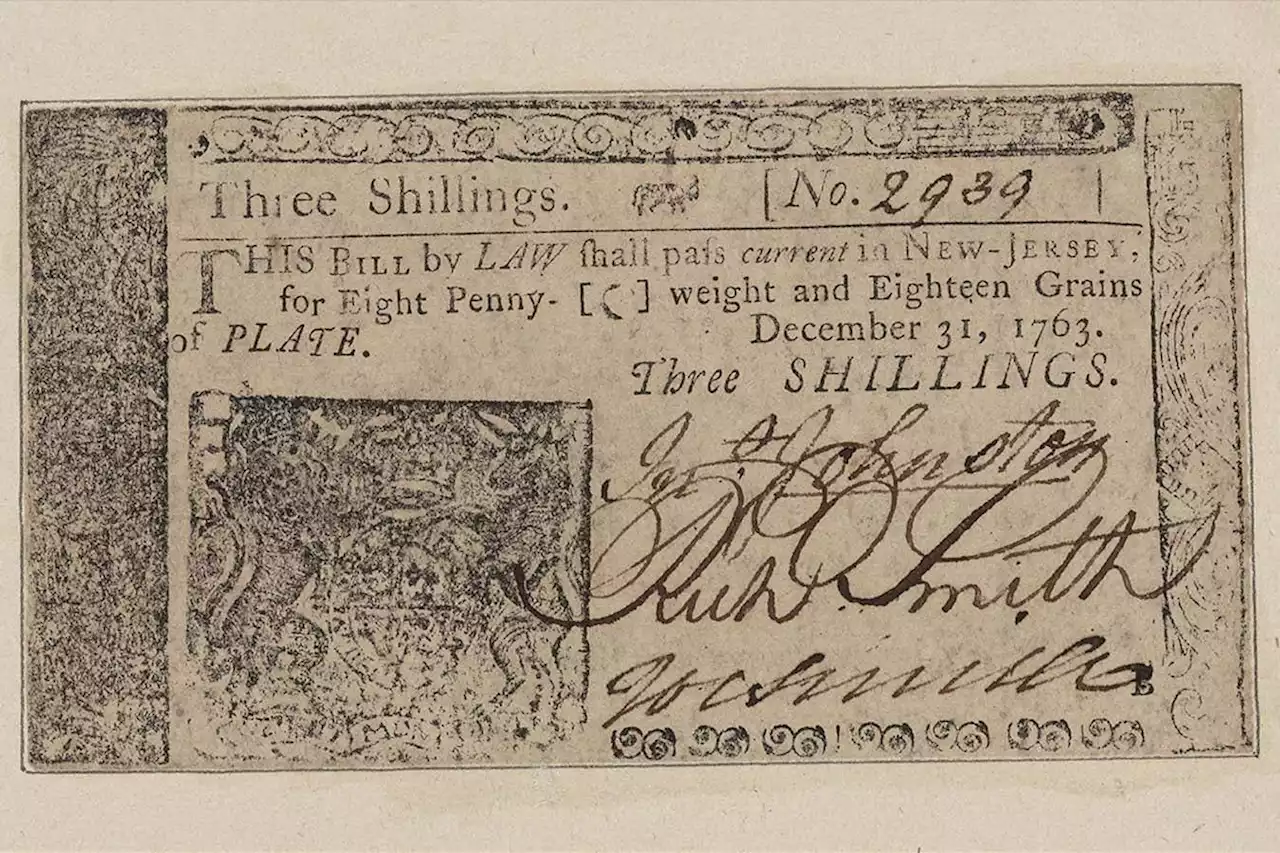 Three Shillings. [No. 2939 |
THIS BILL by LAW ſhall paſs current in NEW-JERSEY,
for Eight Penny- [ ] weight and Eighteen Grains
of PLATE.
December 31, 1763.
Three SHILLINGS.
Johnston
Richd. Smith
B